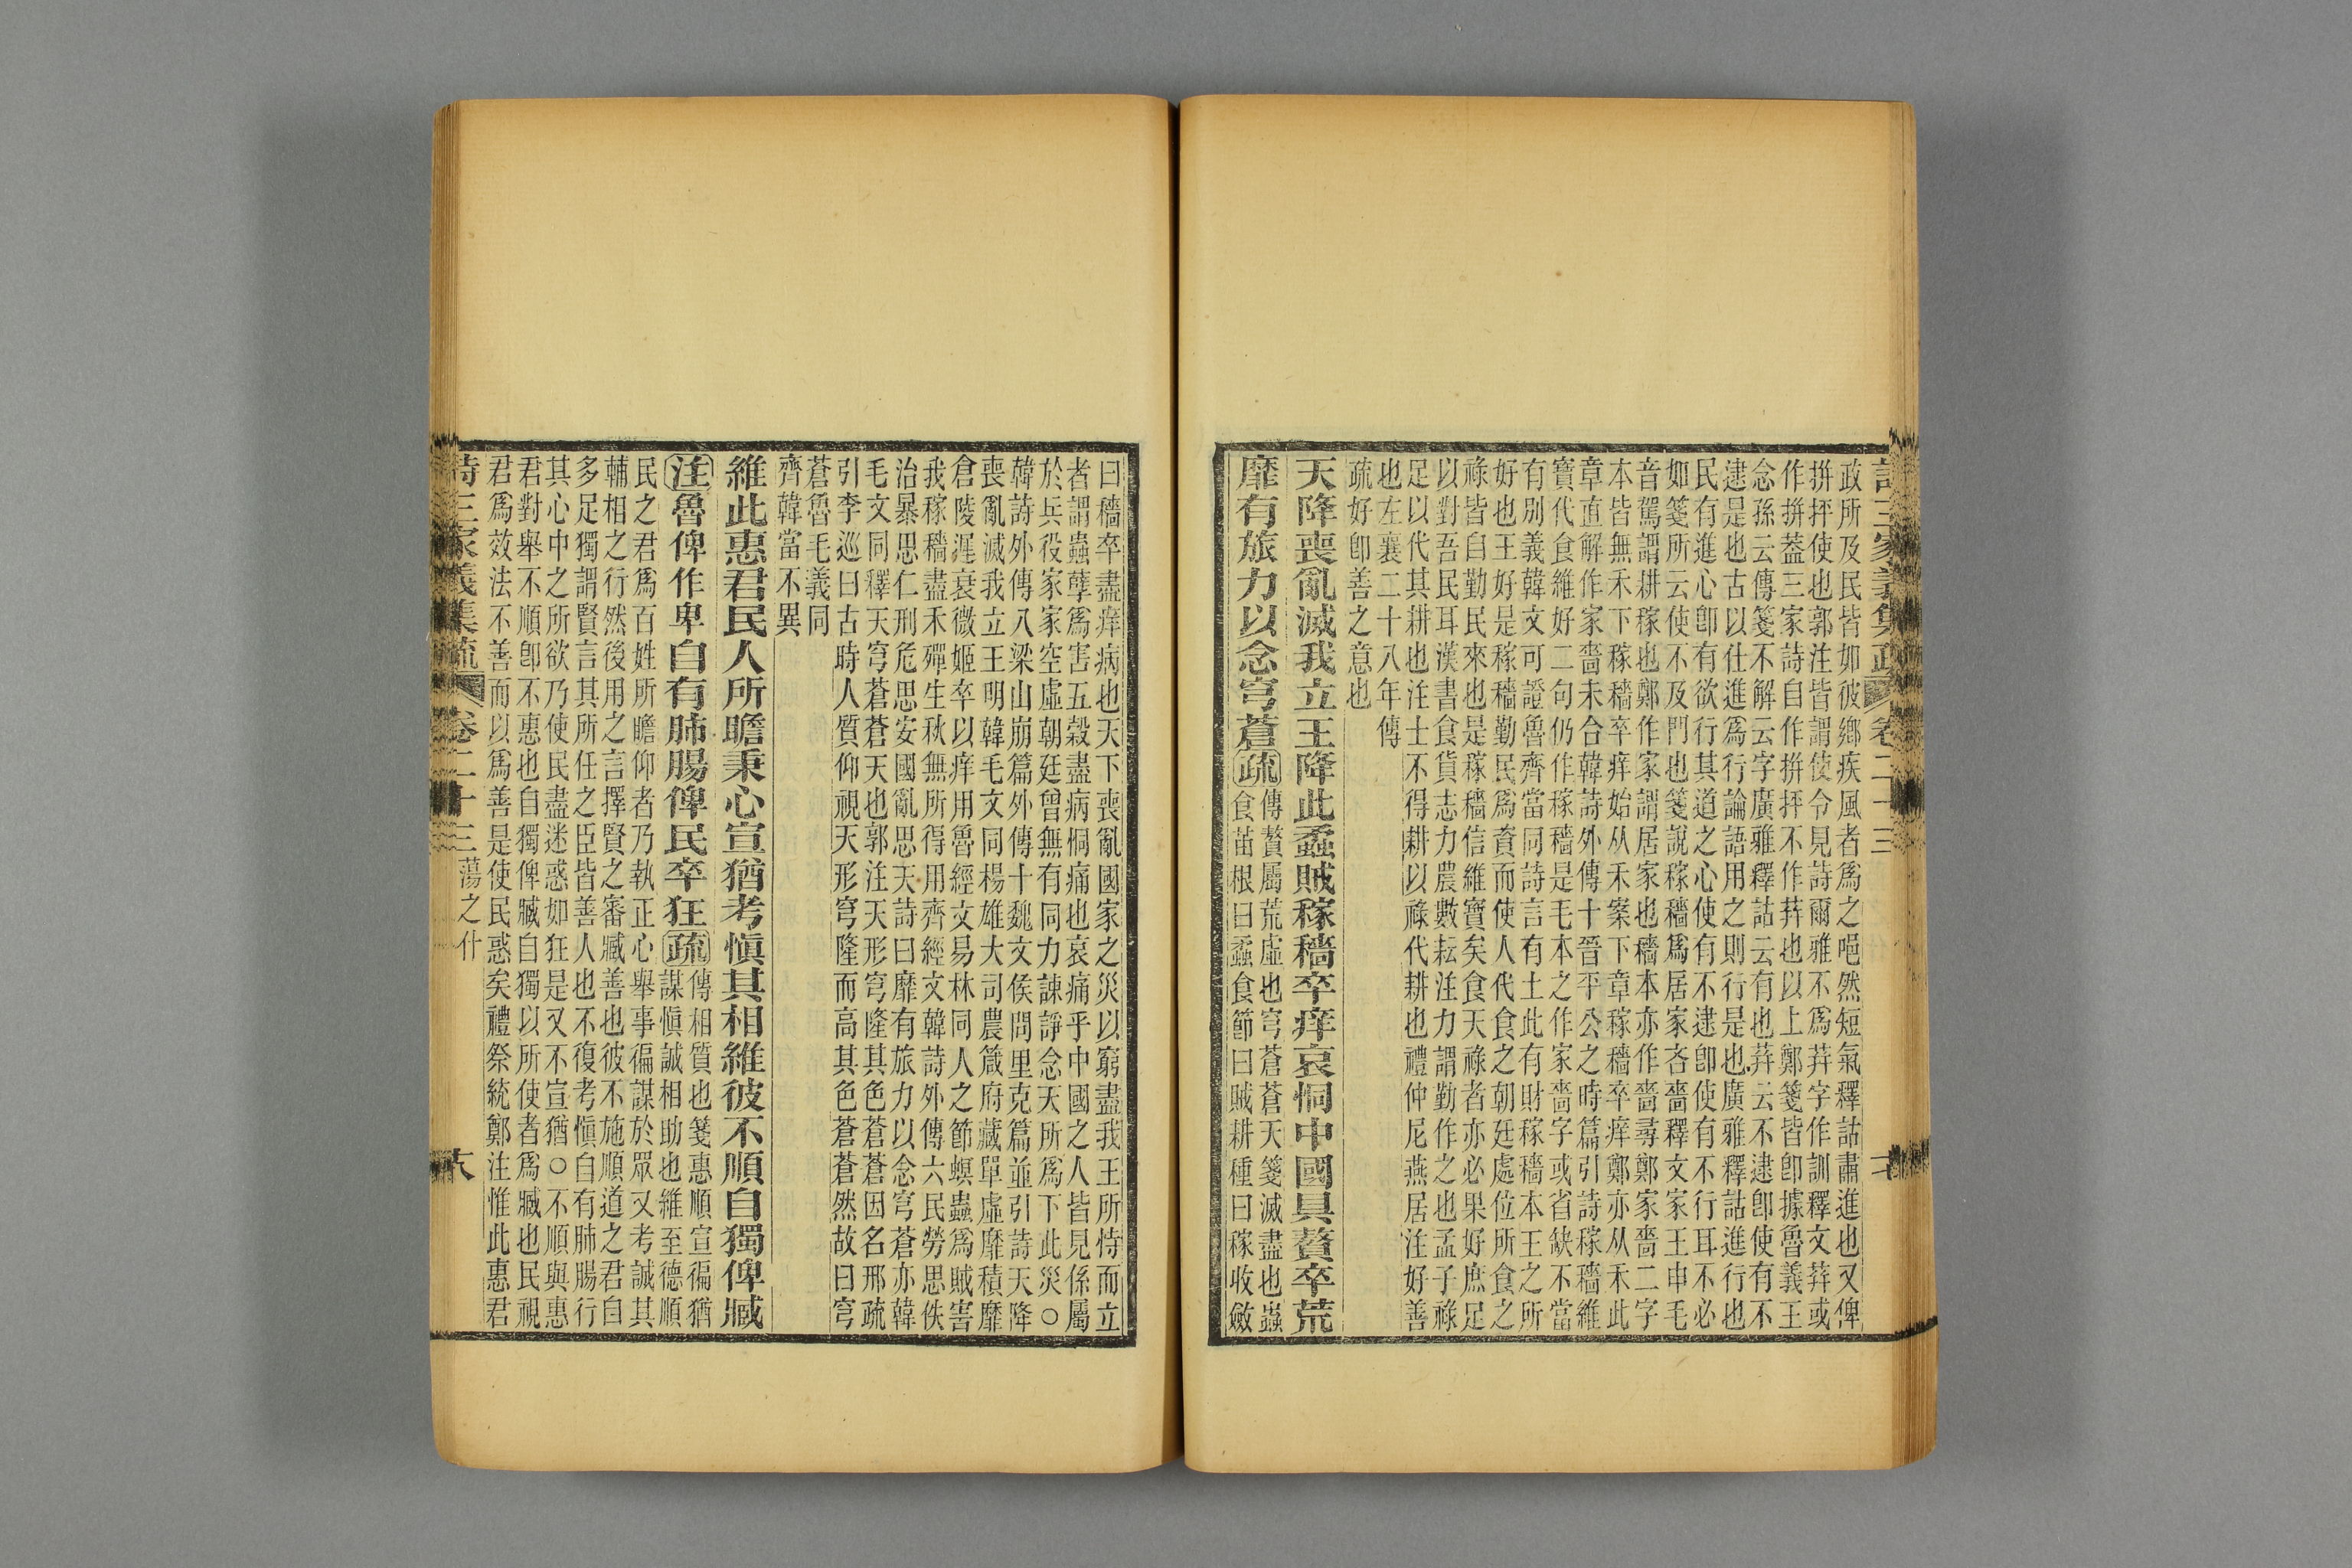 詩三家義集疏 卷二十三
政所及民皆如彼鄉疾風者爲之唈然短氣釋詁肅進也又俾
拼抨使也郭注皆謂使令見詩爾雅不爲荓字作訓釋文荓或
作拼葢三家詩自作拼抨不作荓也以上鄭箋皆卽據魯義王
念孫云傳箋不解云字廣雅釋詁云有也荓云不逮卽使有不
逮是也古以仕進爲行論語用之則行是也廣雅釋詁進行也
民有進心卽有欲行其道之心使有不逮卽使有不行耳不必
如箋所云使不及門也箋說稼穡爲居家吝嗇釋文家王申毛
音駕謂耕稼也鄭作家謂居家也穡本亦作嗇尋鄭家嗇二字
本皆無禾下稼穡卒痒始从禾案下章稼穡卒痒鄭亦从禾此
章直解作家嗇未合韓詩外傳十晉平公之時篇引詩稼穡維
寶代食維好二句仍作稼穡是毛本之作家嗇字或省缺不當
有別義韓文可證魯齊當同詩言有土此有財稼穡本王之所
好也王好是稼穡勤民爲資而使人代食之朝廷處位所食之
祿皆自勤民來也是稼穡信維寶矣食天祿者亦必果好庶足
以對吾民耳漢書食貨志力農數耘注力謂勤作之也孟子祿
足以代其耕也注士不得耕以祿代耕也禮仲尼燕居注好善
也左襄二十八年傳
疏好卽善之意也
天降喪亂滅我立王降此蟊賊稼穡卒痒哀恫中國具贅卒荒
靡有旅力以念穹蒼疏傳贅屬荒虛也穹蒼蒼天箋滅盡也蟲
食苗根曰蟊食節曰賊耕種曰稼收斂
曰穡卒盡痒病也天下喪亂國家之災以窮盡我王所恃而立
者謂蟲孽爲害五穀盡病恫痛也哀痛乎中國之人皆見係屬
於兵役家家空虛朝廷曾無有同力諫諍念天所爲下此災○
韓詩外傳八梁山崩篇外傳十魏文侯問里克篇並引詩天降
喪亂滅我立王明韓毛文同楊雄大司農箴府藏單虛靡積靡
倉陵遲衰微姬卒以痒用魯經文易林同人之節螟蟲爲賊害
我稼穡盡禾殫生秋無所得用齊經文韓詩外傳六民勞思佚
治暴思仁刑危思安國亂思天詩曰靡有旅力以念穹蒼亦韓
毛文同釋天穹蒼蒼天也郭注天形穹隆其色蒼蒼因名邢疏
引李巡曰古時人質仰視天形穹隆而高其色蒼蒼然故曰穹
蒼魯毛義同
齊韓當不異
維此惠君民人所瞻秉心宣猶考愼其相維彼不順自獨俾臧
注魯俾作卑自有肺腸俾民卒狂疏傳相質也箋惠順宣徧猶
謀愼誠相助也維至德順
民之君爲百姓所瞻仰者乃執正心舉事徧謀於眾又考誠其
輔相之行然後用之言擇賢之審臧善也彼不施順道之君自
多足獨謂賢言其所任之臣皆善人也不復考愼自有肺腸行
其心中之所欲乃使民盡迷惑如狂是又不宣猶○不順與惠
君對舉不順卽不惠也自獨俾臧自獨以所使者爲臧也民視
君爲效法不善而以爲善是使民惑矣禮祭統鄭注惟此惠君
詩三家義集疏 卷二十三 蕩之什 六